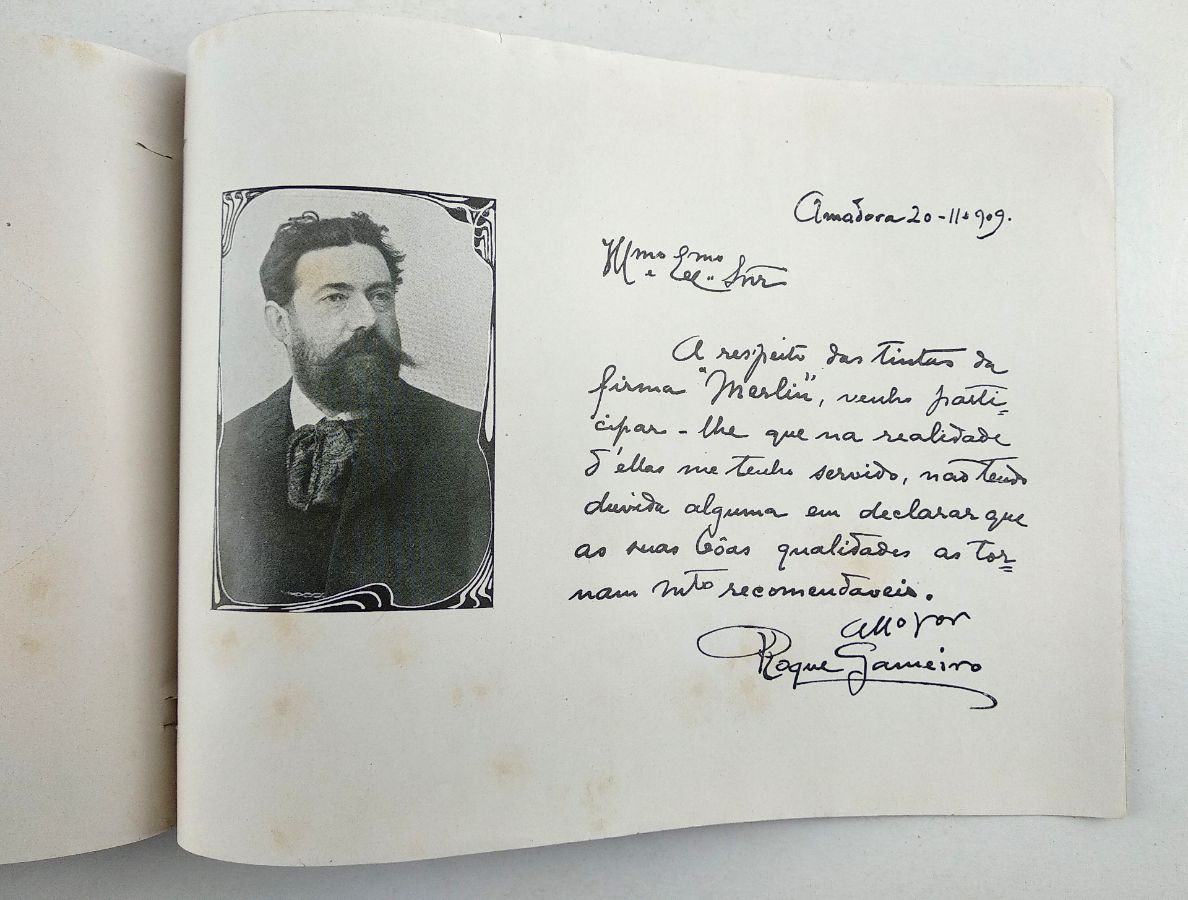 Amadora 20-11-909.
Illmo e Exmo Snr
A respeito das tintas da
firma "Merlin", venho parti=
cipar-lhe que na realidade
d'ellas me tenho servido, não tendo
duvida alguma em declarar que
as suas bôas qualidades as tor=
nam mto recomendaveis.
Atto Vor
Roque Gameiro